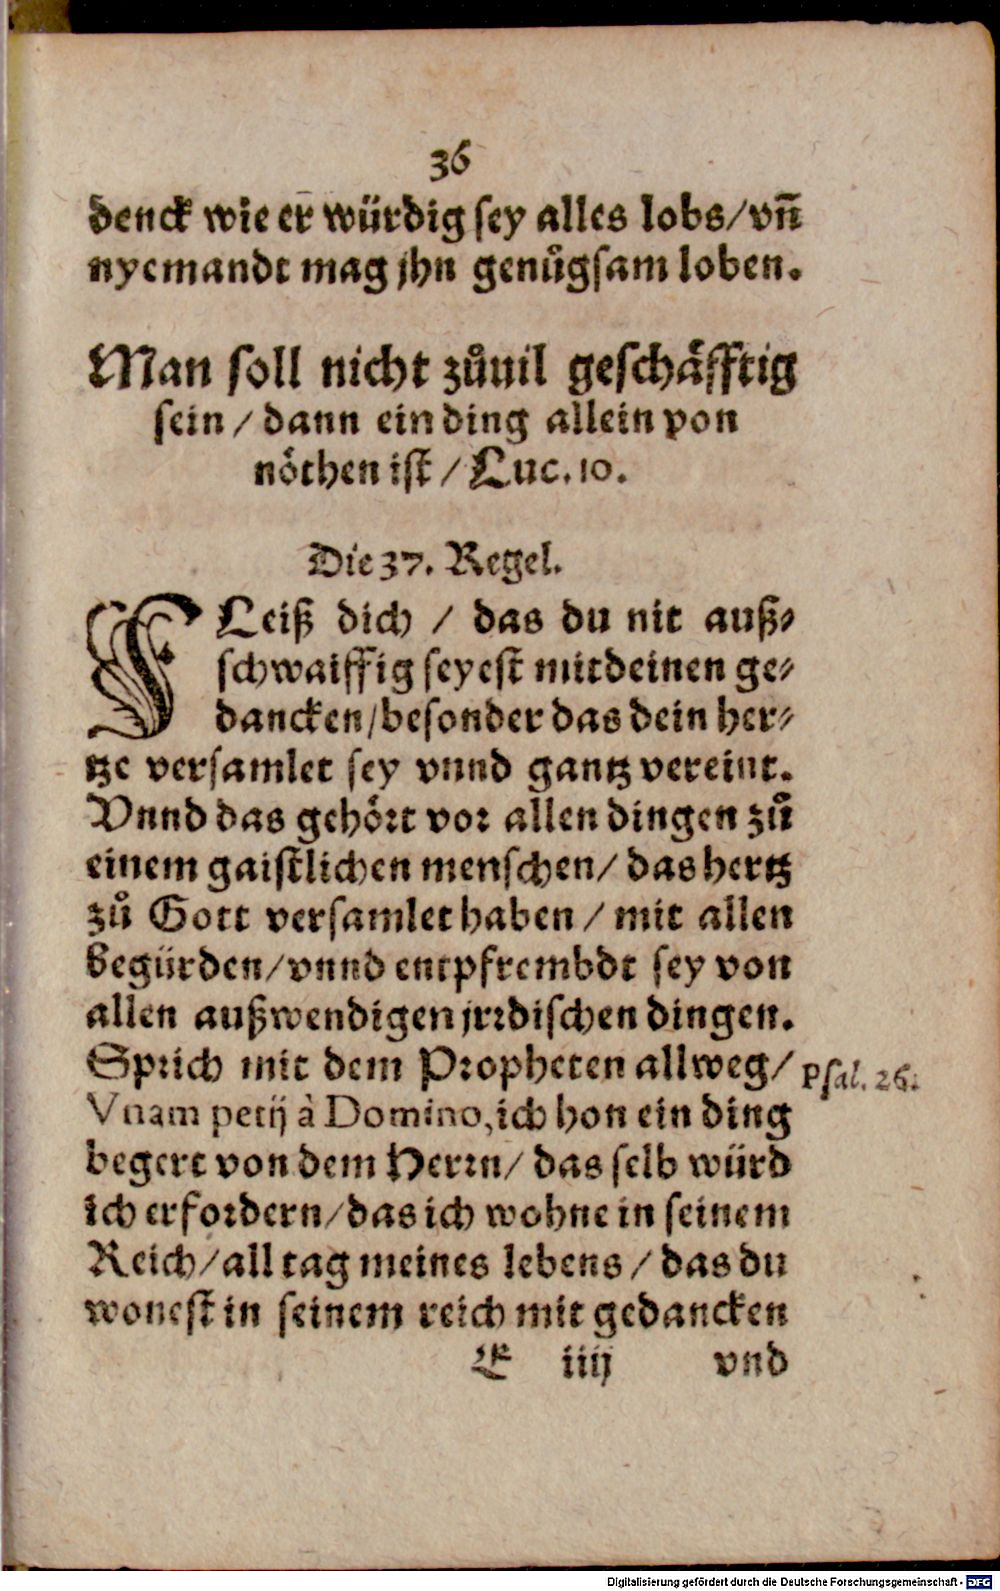 36
denck wie er würdig sey alles lobs/vn̄
nyemandt mag jhn genůgsam loben.
Man soll nicht zůuil geschäfftig
sein / dann ein ding allein von
nöthen ist / Luc. 10.
Die 37. Regel.
FLeiß dich / das du nit auß⸗
schwaiffig seyest mit deinen ge⸗
dancken/besonder das dein her⸗
tze versamlet sey vnnd gantz vereint.
Vnnd das gehört vor allen dingen zů
einem gaistlichen menschen/ das hertz
zů Gott versamlet haben / mit allen
begürden/vnnd entpfrembdt sey von
allen außwendigen jrrdischen dingen.
Sprich mit dem Propheten allweg/
Psal. 26.
Vnam petij à Domino, ich hon ein ding
begert von dem Herrn/ das selb würd
ich erfordern/das ich wohne in seinem
Reich/all tag meines lebens / das du
wonest in seinem reich mit gedancken
E iiij vnd
Digitalisierung gefördert durch die Deutsche Forschungsgemeinschaft - DFG